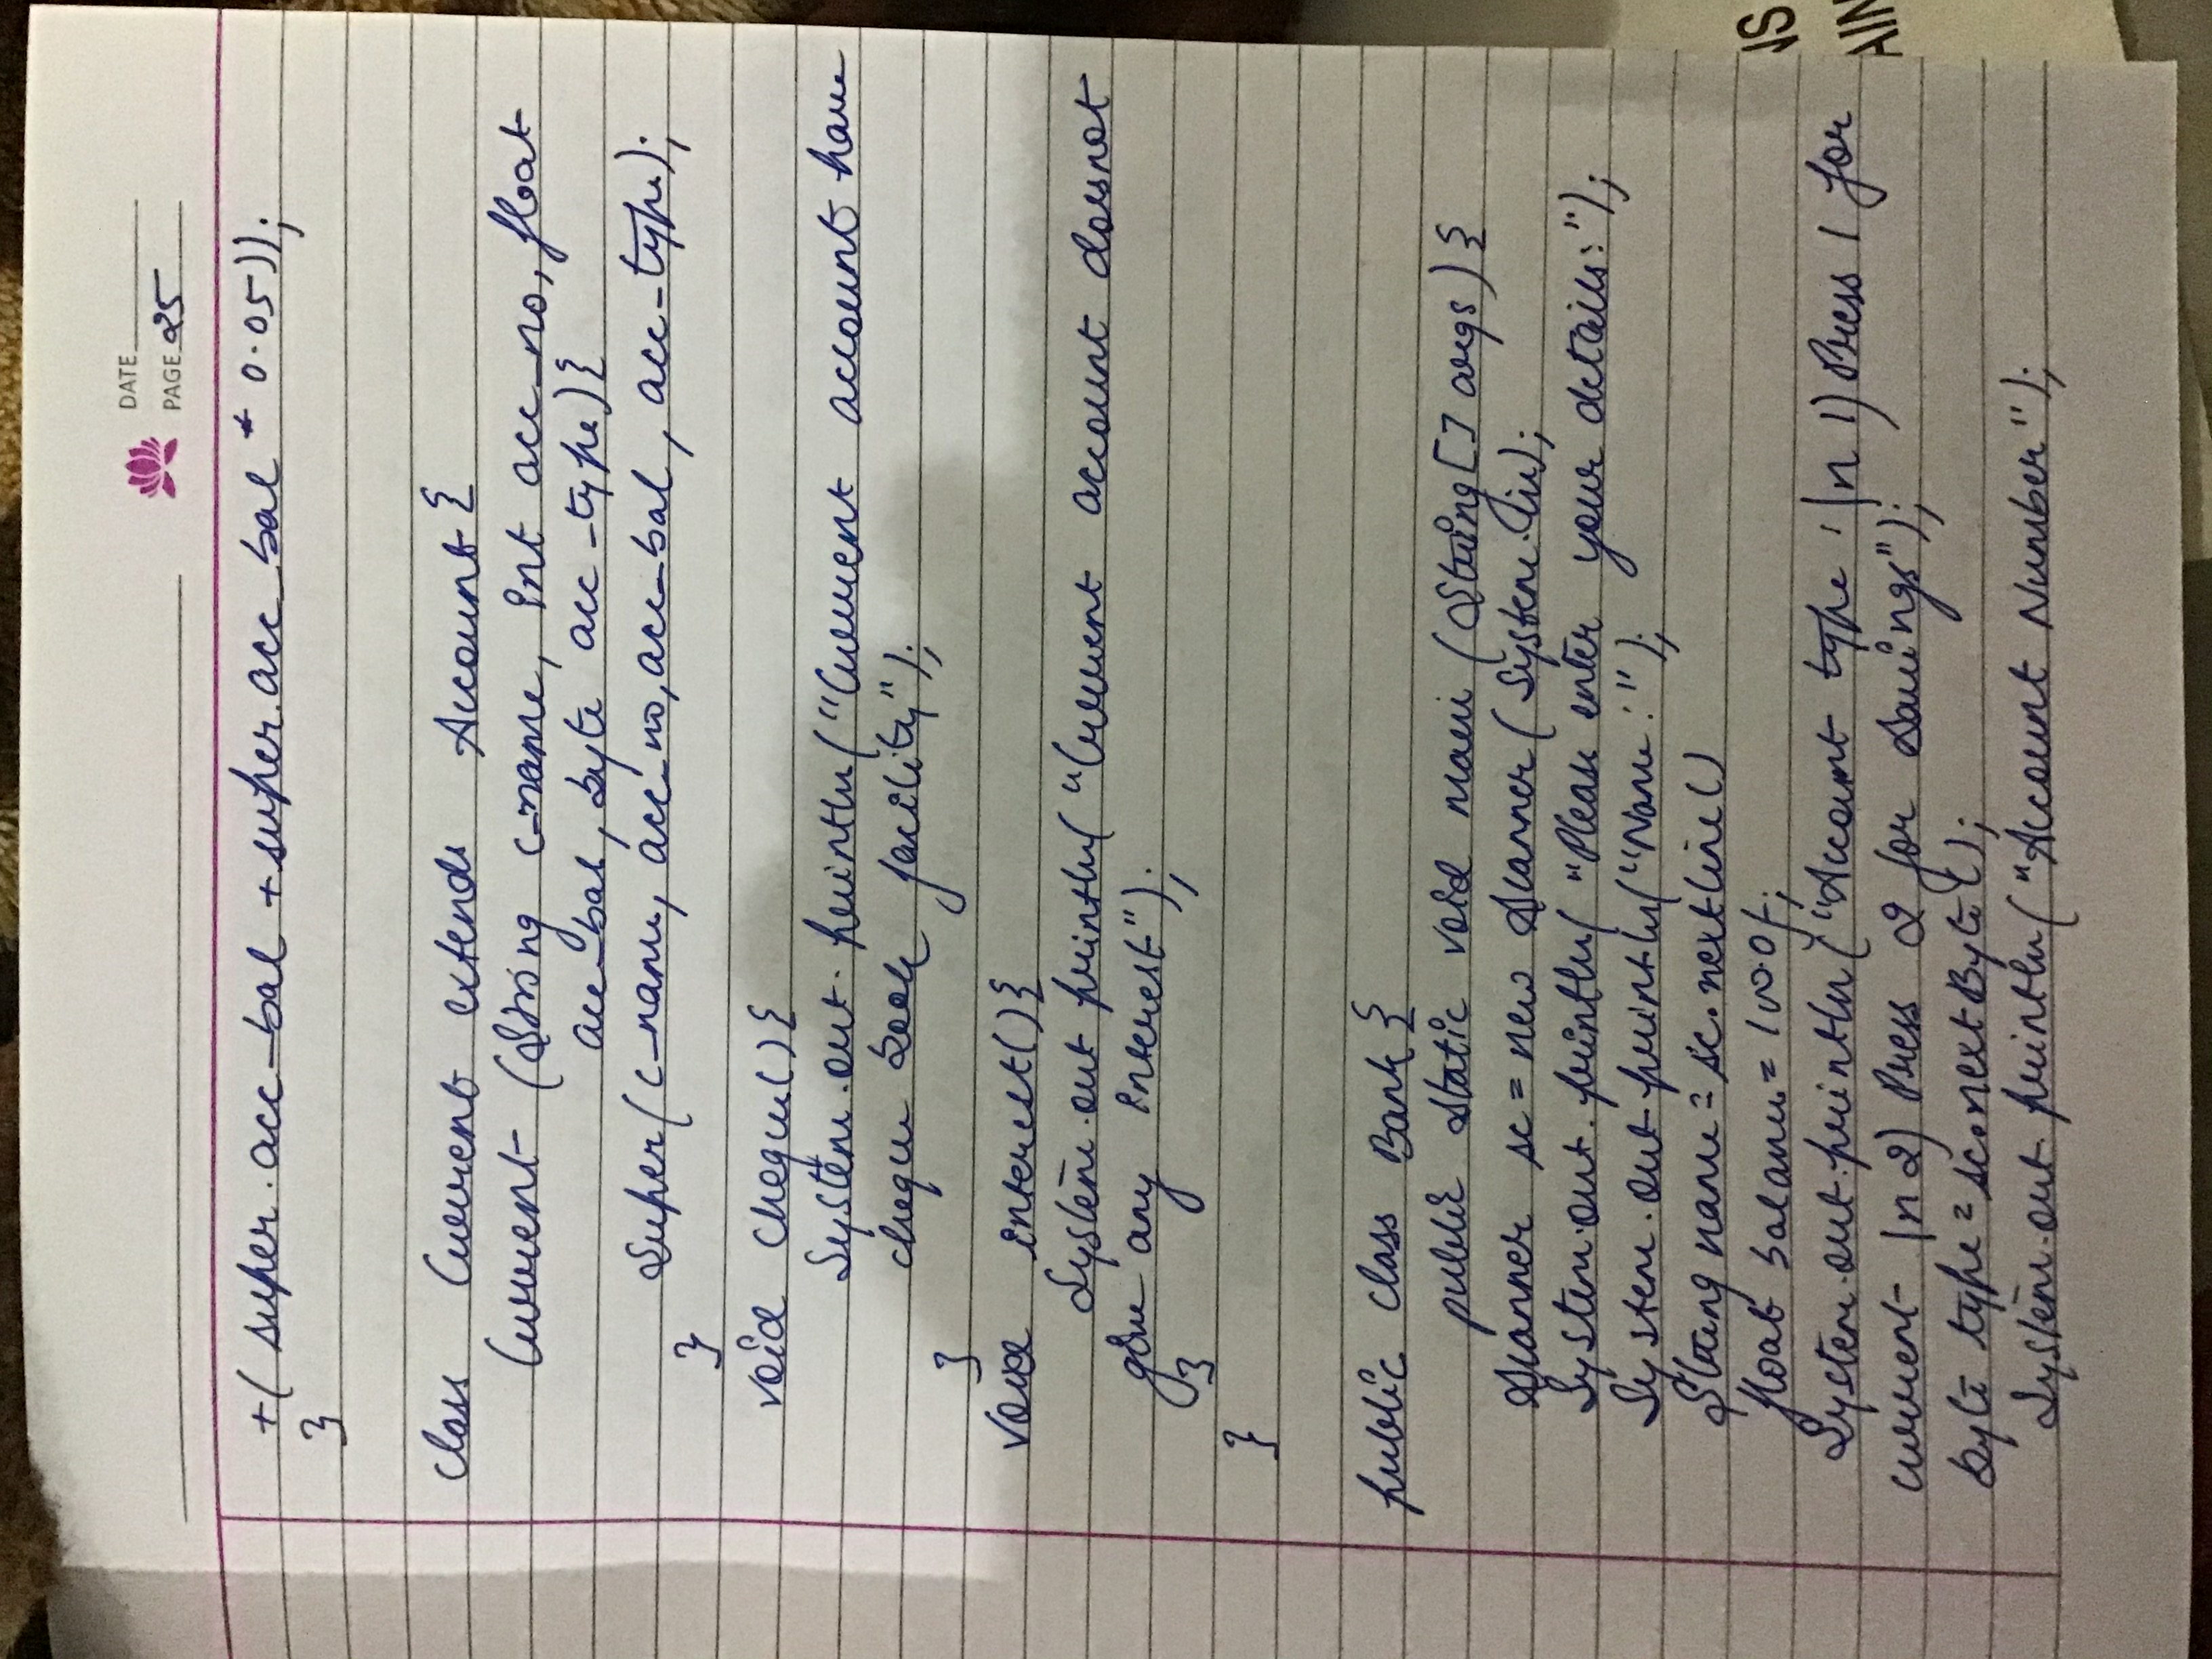 DATE
PAGE 25
+( super.acc_bal + super.acc_bal * 0.05));
}
class Current extends Account {
Current (String c_name, int acc_no, float
acc_bal, byte acc_type){
Super(c_name, acc_no, acc_bal, acc_type);
}
void cheque(){
System.out.println("Current account have
cheque book facility");
}
void interest(){
System.out println("Current account doesnot
give any interest");
}
}
public class Bank {
public static void main (String[] args) {
Scanner sc = new Scanner (System.in);
System.out.println( "Please enter your details:");
System.out.println("Name:");
String name = sc.nextline()
float balance = 100.0f;
System.out.println("Account type : \n 1) Press 1 for
current \n 2) Press 2 for Savings");
byte type = sc.nextByte();
System.out.println("Account Number");
NS
AIN